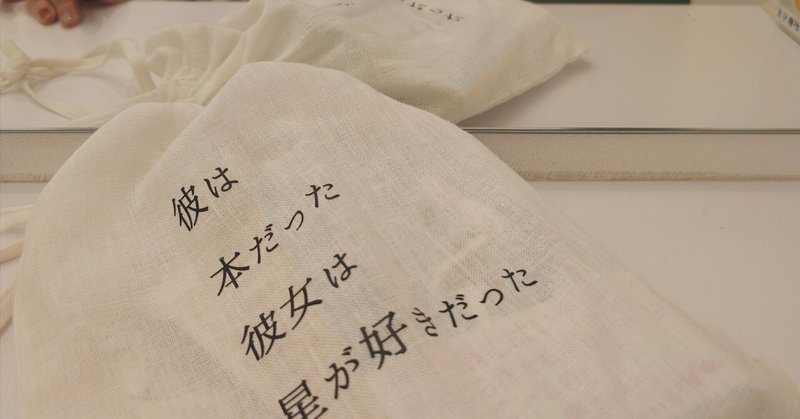 彼は
本だった
彼女は
星が好きだった